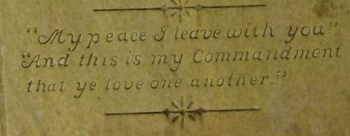 "My peace I leave with you"
"And this is my Commandment
that ye love one another."